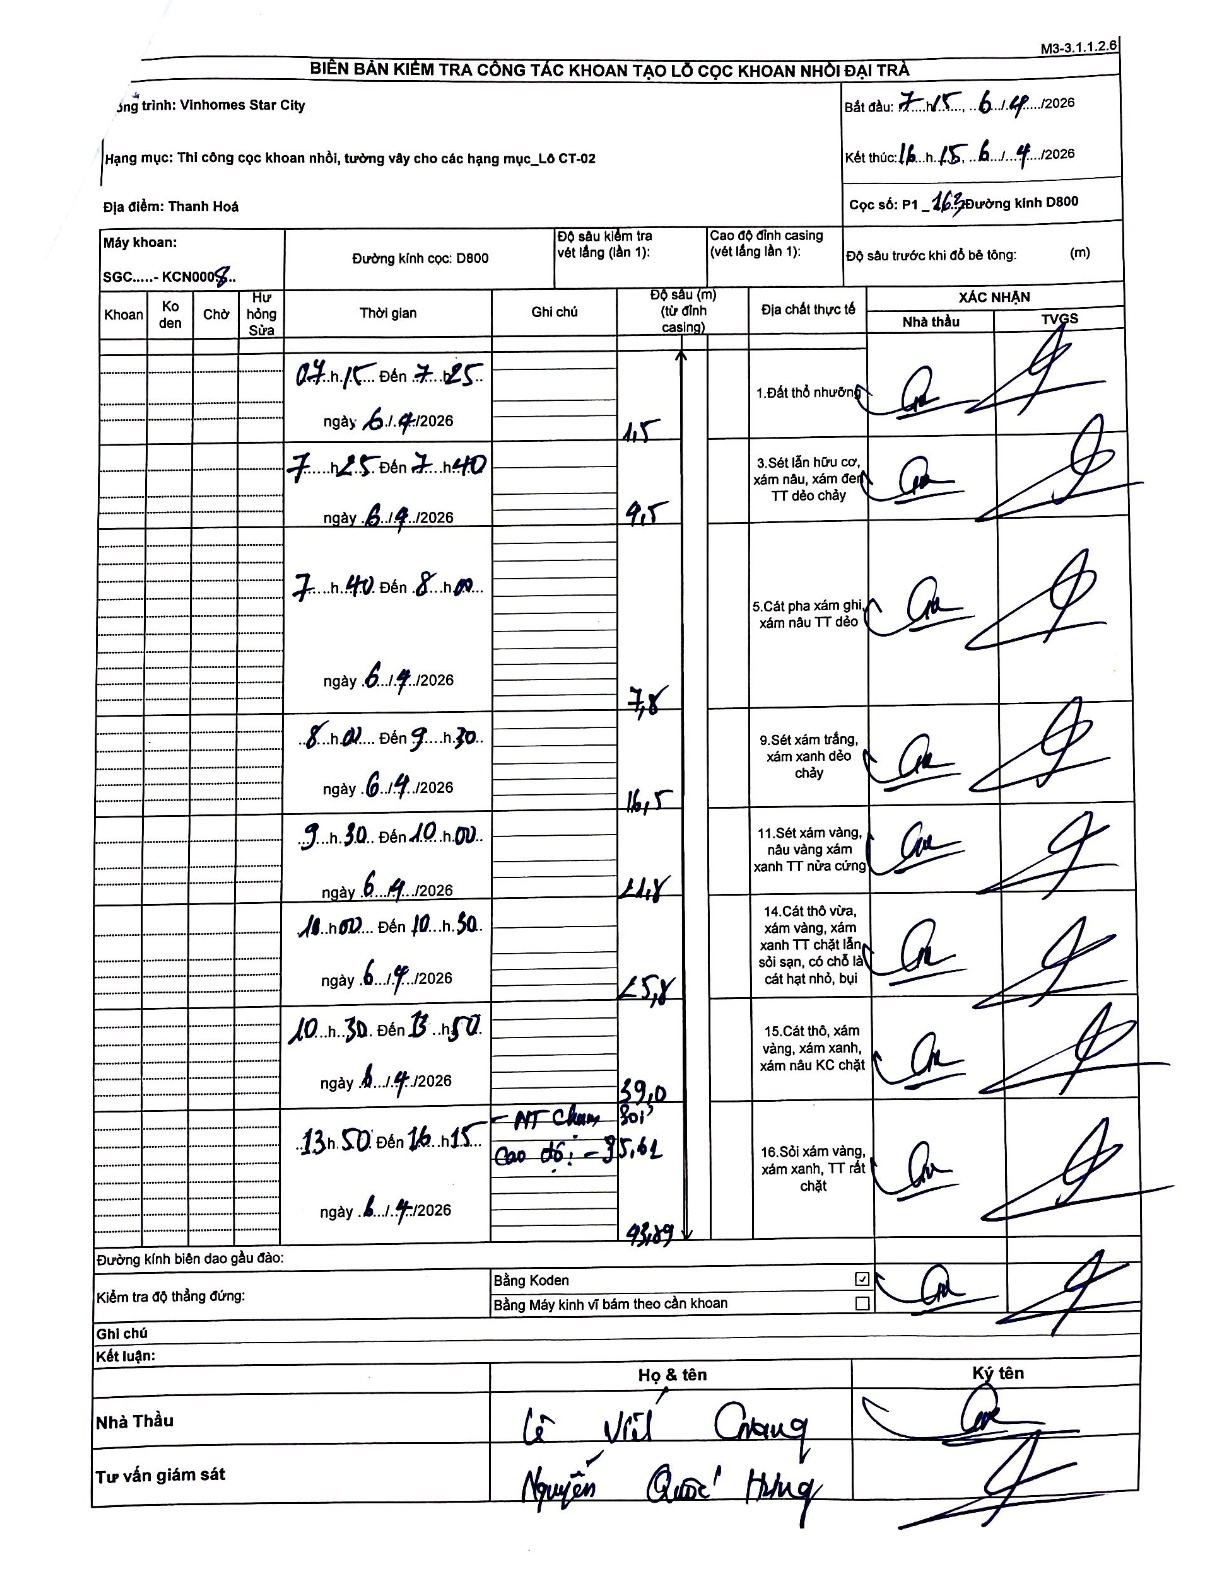 M3-3.1.1.2.6
BIÊN BẢN KIỂM TRA CÔNG TÁC KHOAN TẠO LỖ CỌC KHOAN NHỒI ĐẠI TRÀ
ông trình: Vinhomes Star City
Bắt đầu: 7 h 15, 6/4/2026
Hạng mục: Thi công cọc khoan nhồi, tường vây cho các hạng mục_Lô CT-02
Kết thúc: 16 h 15, 6/4/2026
Địa điểm: Thanh Hoá
Cọc số: P1_163 Đường kính D800
Máy khoan:
SGC.....- KCN0008..
Đường kính cọc: D800
Độ sâu kiểm tra
vét lắng (lần 1):
Cao độ đỉnh casing
(vét lắng lần 1):
Độ sâu trước khi đổ bê tông: (m)
Khoan
Ko
den
Chờ
Hư
hỏng
Sửa
Thời gian
Ghi chú
Độ sâu (m)
(từ đỉnh
casing)
Địa chất thực tế
XÁC NHẬN
Nhà thầu
TVGS
07 h 15 Đến 7 h 25
ngày 6/4/2026
1,5
1.Đất thổ nhưỡng
7 h 25 Đến 7 h 40
ngày 6/4/2026
4,5
3.Sét lẫn hữu cơ,
xám nâu, xám đen
TT dẻo chảy
7 h 40 Đến 8 h 00
ngày 6/4/2026
7,8
5.Cát pha xám ghi,
xám nâu TT dẻo
8 h 00 Đến 9 h 30
ngày 6/4/2026
16,5
9.Sét xám trắng,
xám xanh dẻo
chảy
9 h 30 Đến 10 h 00
ngày 6/4/2026
21,8
11.Sét xám vàng,
nâu vàng xám
xanh TT nửa cứng
10 h 00 Đến 10 h 30
ngày 6/4/2026
25,8
14.Cát thô vừa,
xám vàng, xám
xanh TT chặt lẫn
sỏi sạn, có chỗ là
cát hạt nhỏ, bụi
10 h 30 Đến 13 h 50
ngày 6/4/2026
39,0
15.Cát thô, xám
vàng, xám xanh,
xám nâu KC chặt
13 h 50 Đến 16 h 15
ngày 6/4/2026
- NT Chạm sỏi
Cao độ: - 35,61
43,89
16.Sỏi xám vàng,
xám xanh, TT rất
chặt
Đường kính biên dao gầu đào:
Kiểm tra độ thẳng đứng:
Bằng Koden ☑
Bằng Máy kinh vĩ bám theo cần khoan ☐
Ghi chú
Kết luận:
Họ & tên
Ký tên
Nhà Thầu
Lê Viết
Tư vấn giám sát
Nguyễn Quốc Hưng